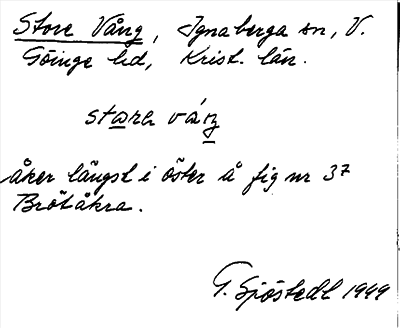 Store Vång, Ignaberga sn, V.
Göinge hd, Krist. län.
stora váng
åker längst i öster å fig nr 37
Brötåkra.
G. Sjöstedt 1949